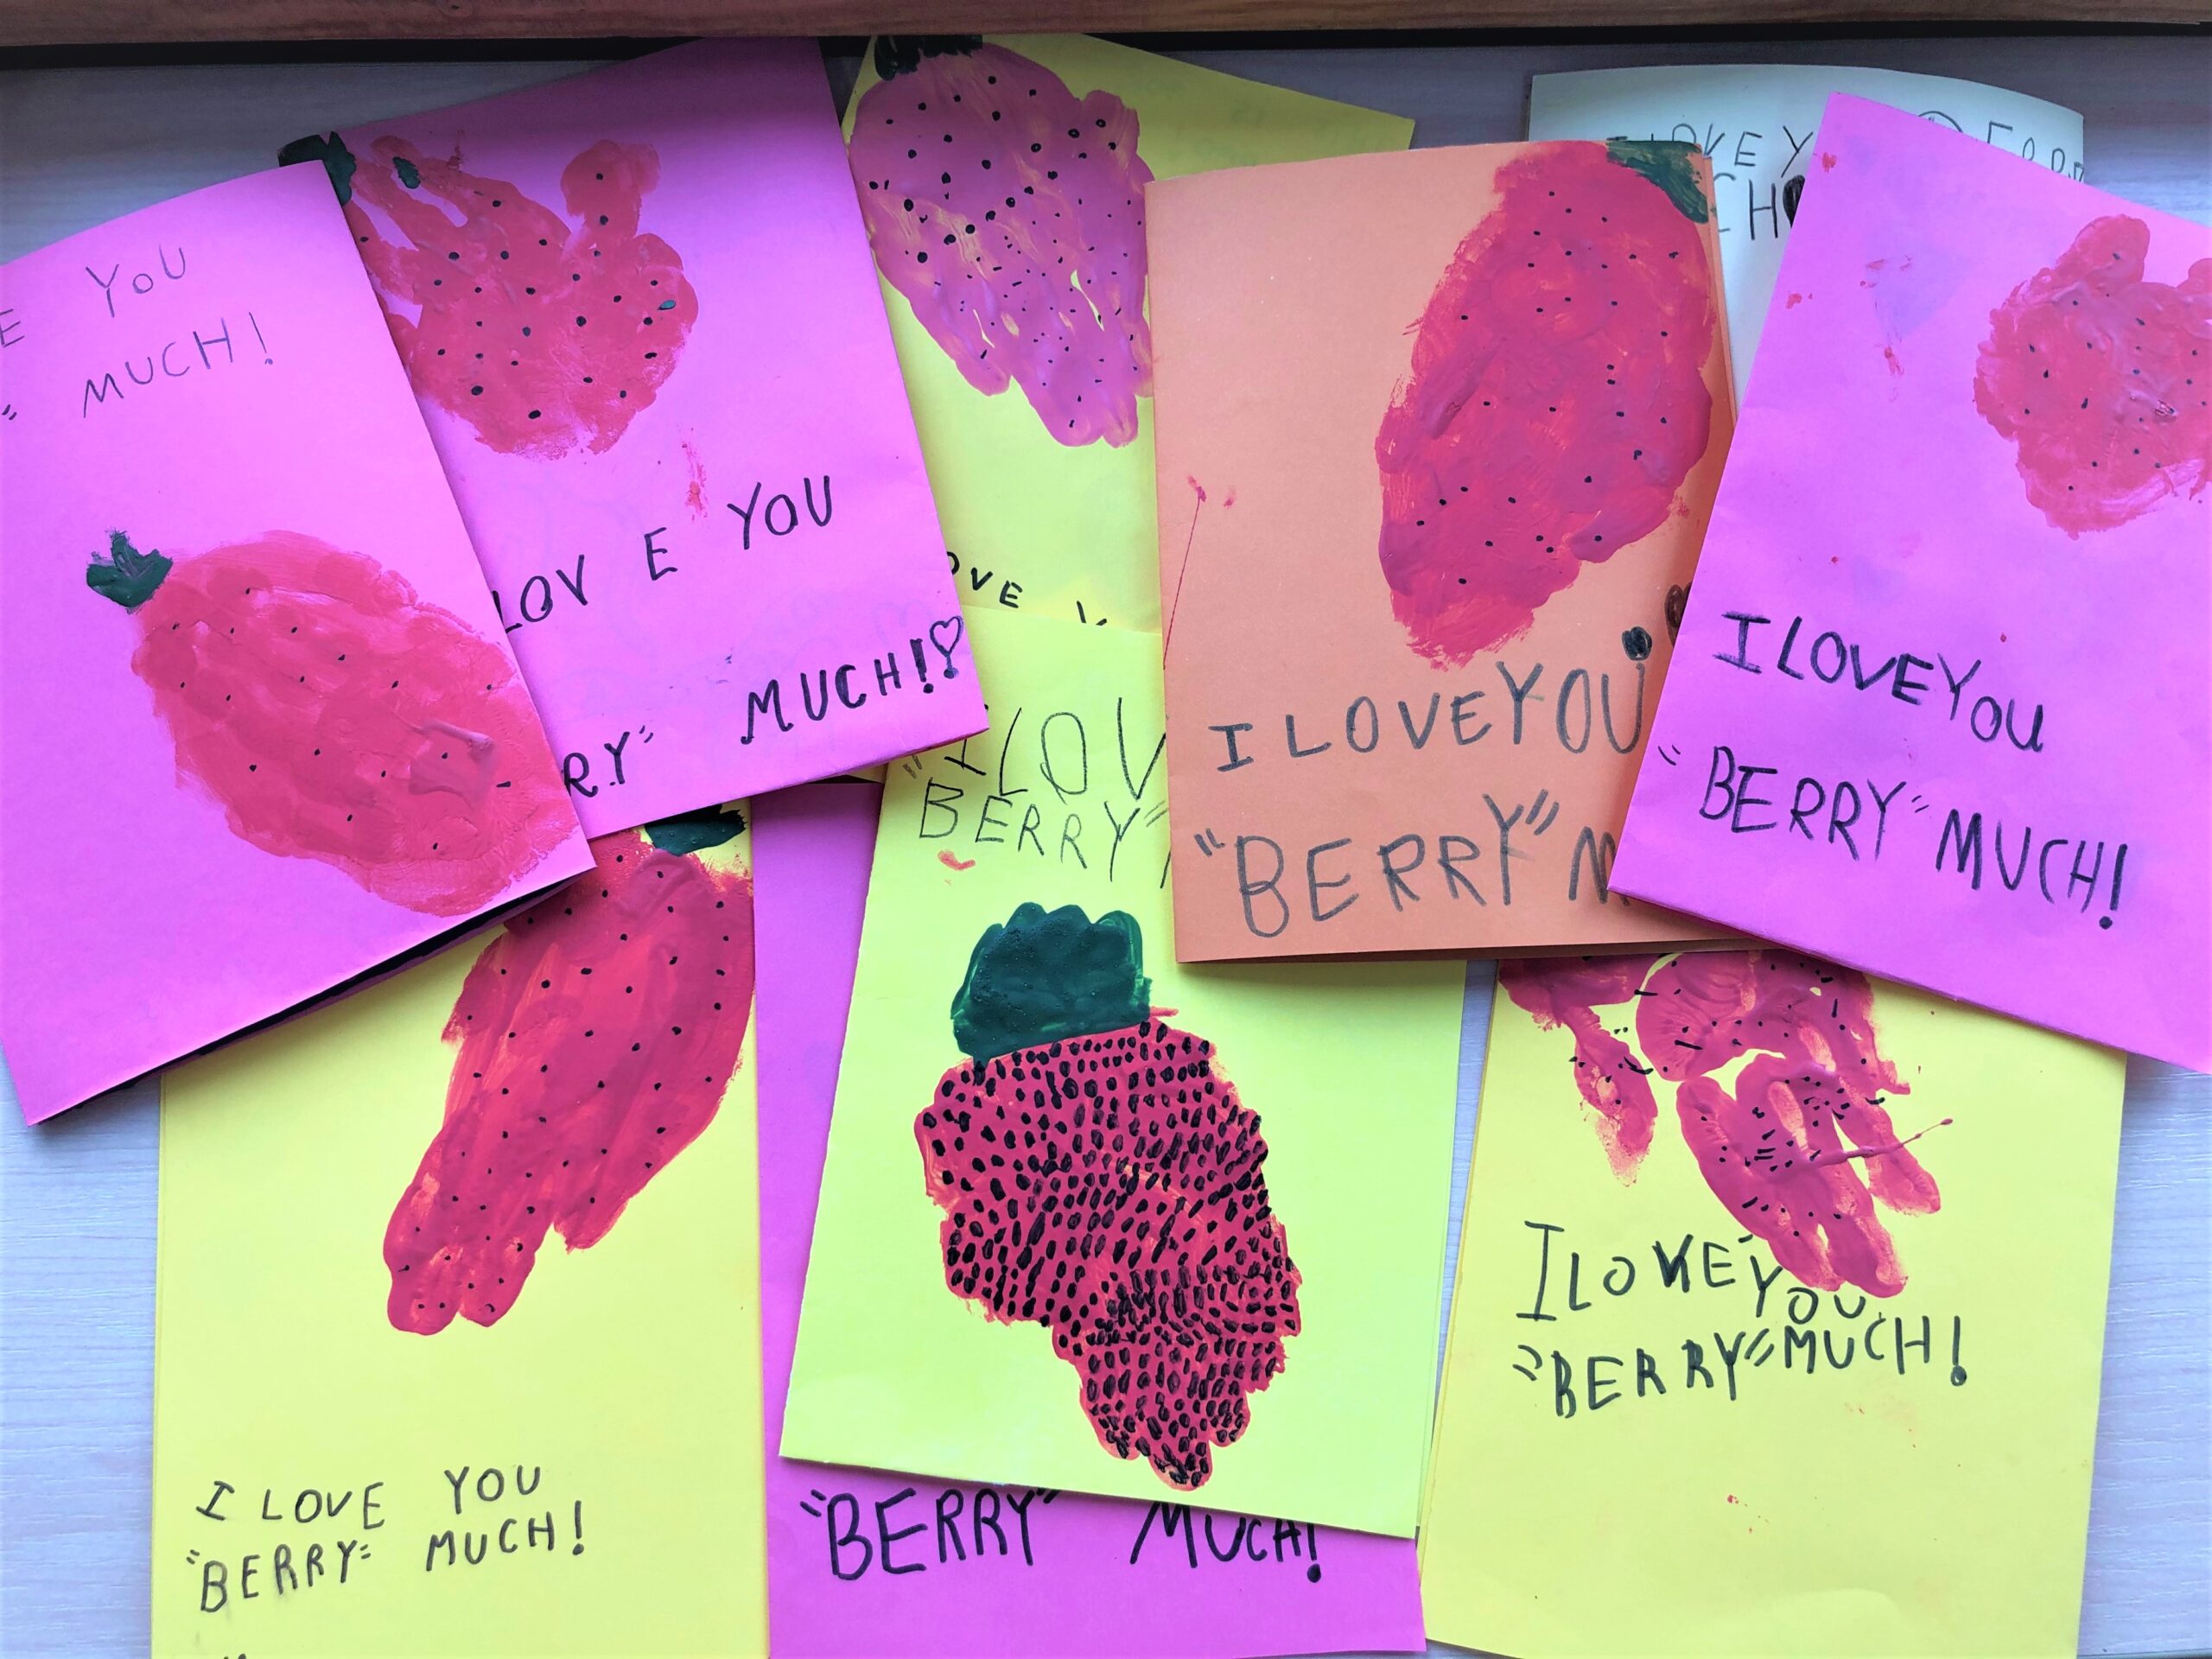 YOU
MUCH!
LOVE YOU
RY" MUCH!
OVE
I LOVE YOU
"BERRY"
LOVE
I LOVE YOU
"BERRY" MUCH!
"I LOV
BERRY"
I LOVE YOU
"BERRY" MUCH!
"BERRY" MUCH!
I LOVE YOU
"BERRY" MUCH!